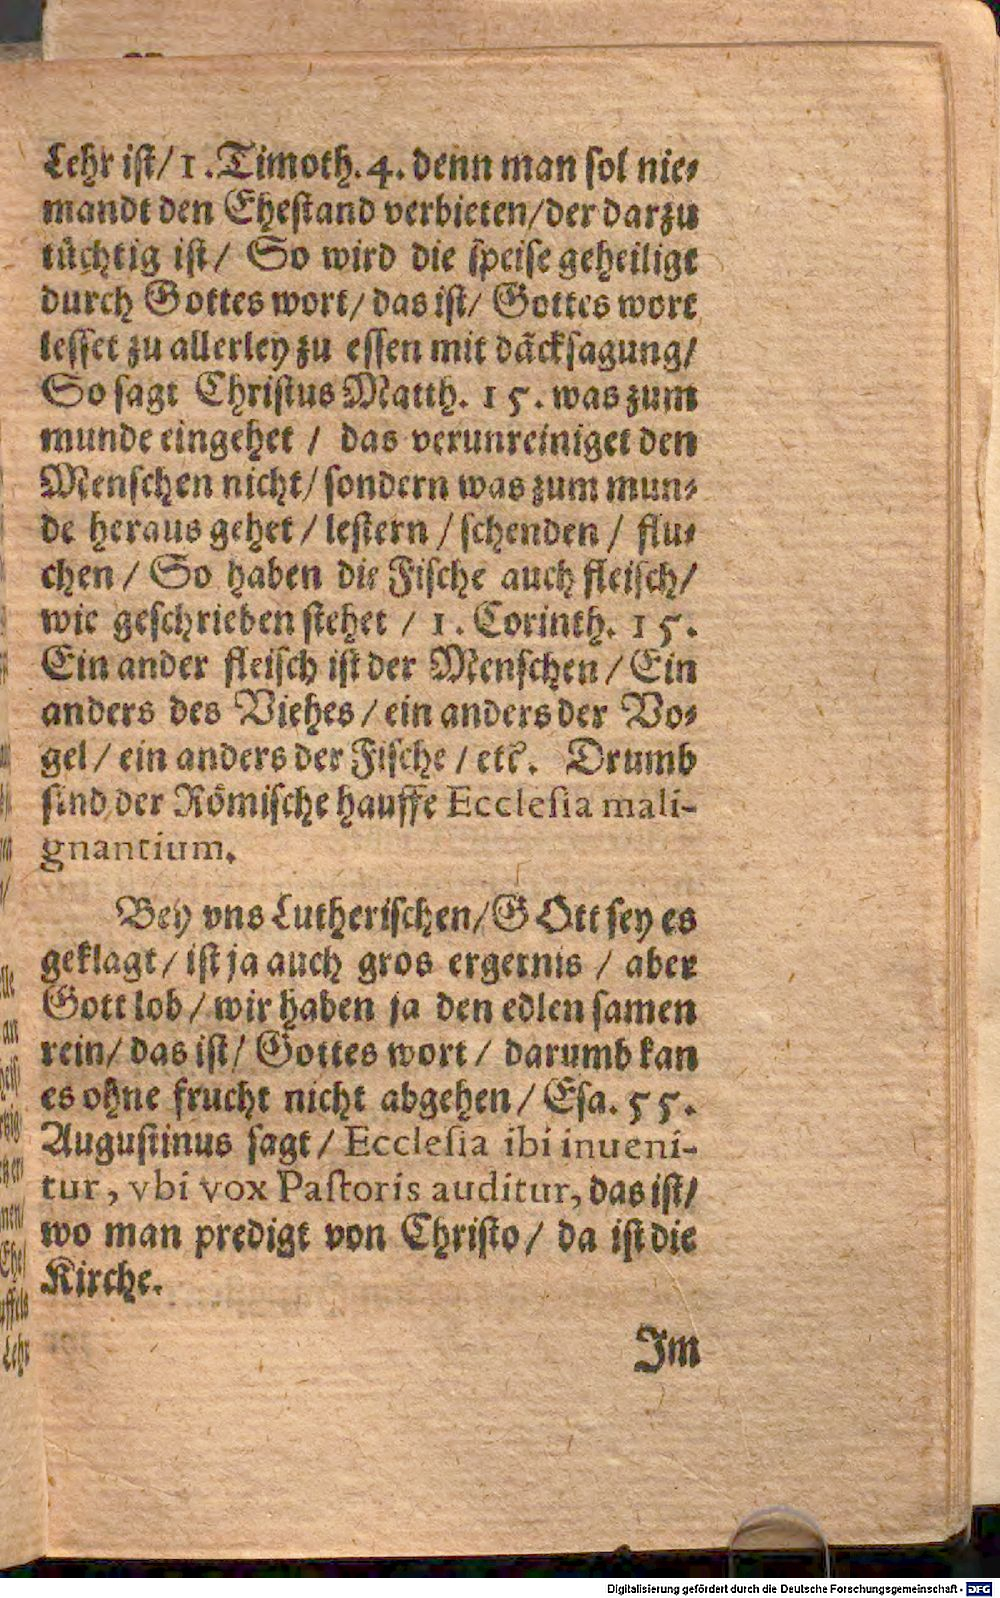 Lehr ist/ 1. Timoth. 4. denn man sol nie⸗
mandt den Ehestand verbieten/ der darzu
tüchtig ist/ So wird die speise geheiligt
durch Gottes wort/ das ist/ Gottes wort
lesset zu allerley zu essen mit dācksagung/
So sagt Christus Matth. 15. was zum
munde eingehet / das verunreiniget den
Menschen nicht/ sondern was zum mun⸗
de heraus gehet / lestern / schenden / flu⸗
chen / So haben die Fische auch fleisch/
wie geschrieben stehet / 1. Corinth. 15.
Ein ander fleisch ist der Menschen / Ein
anders des Viehes / ein anders der Vo⸗
gel / ein anders der Fische / etc. Drumb
sind der Römische hauffe Ecclesia mali-
gnantium.
Bey vns Lutherischen/ GOtt sey es
geklagt/ ist ja auch gros ergernis / aber
Gott lob / wir haben ja den edlen samen
rein/ das ist/ Gottes wort / darumb kan
es ohne frucht nicht abgehen / Esa. 55.
Augustinus sagt / Ecclesia ibi inueni-
tur, vbi vox Pastoris auditur, das ist/
wo man predigt von Christo / da ist die
Kirche.
Im
Digitalisierung gefördert durch die Deutsche Forschungsgemeinschaft - DFG